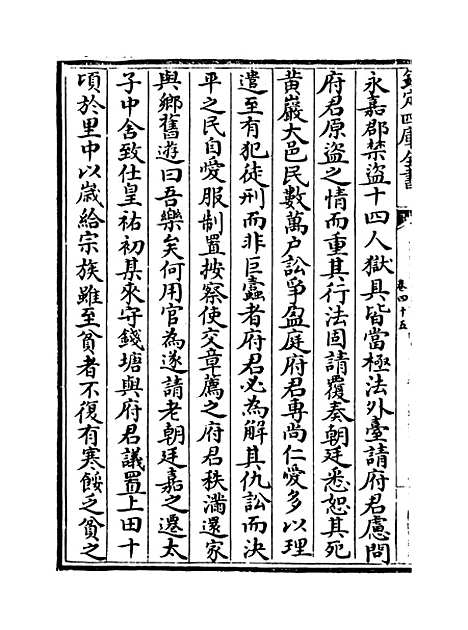 欽定四庫全書
卷四十五
永嘉郡禁盜十四人獄具皆當極法外臺請府君慮問
府君原盜之情而重其行法固請覆奏朝廷悉恕其死
黃巖大邑民數萬户訟爭盈庭府君專尚仁愛多以理
遣至有犯徒刑而非巨蠹者府君必為解其仇訟而決
平之民自愛服制置按察使交章薦之府君秩滿還家
與鄉舊遊曰吾樂矣何用官為遂請老朝廷嘉之遷太
子中舍致仕皇祐初某來守錢塘與府君議置上田十
頃於里中以歲給宗族雖至貧者不復有寒餒乏貧之